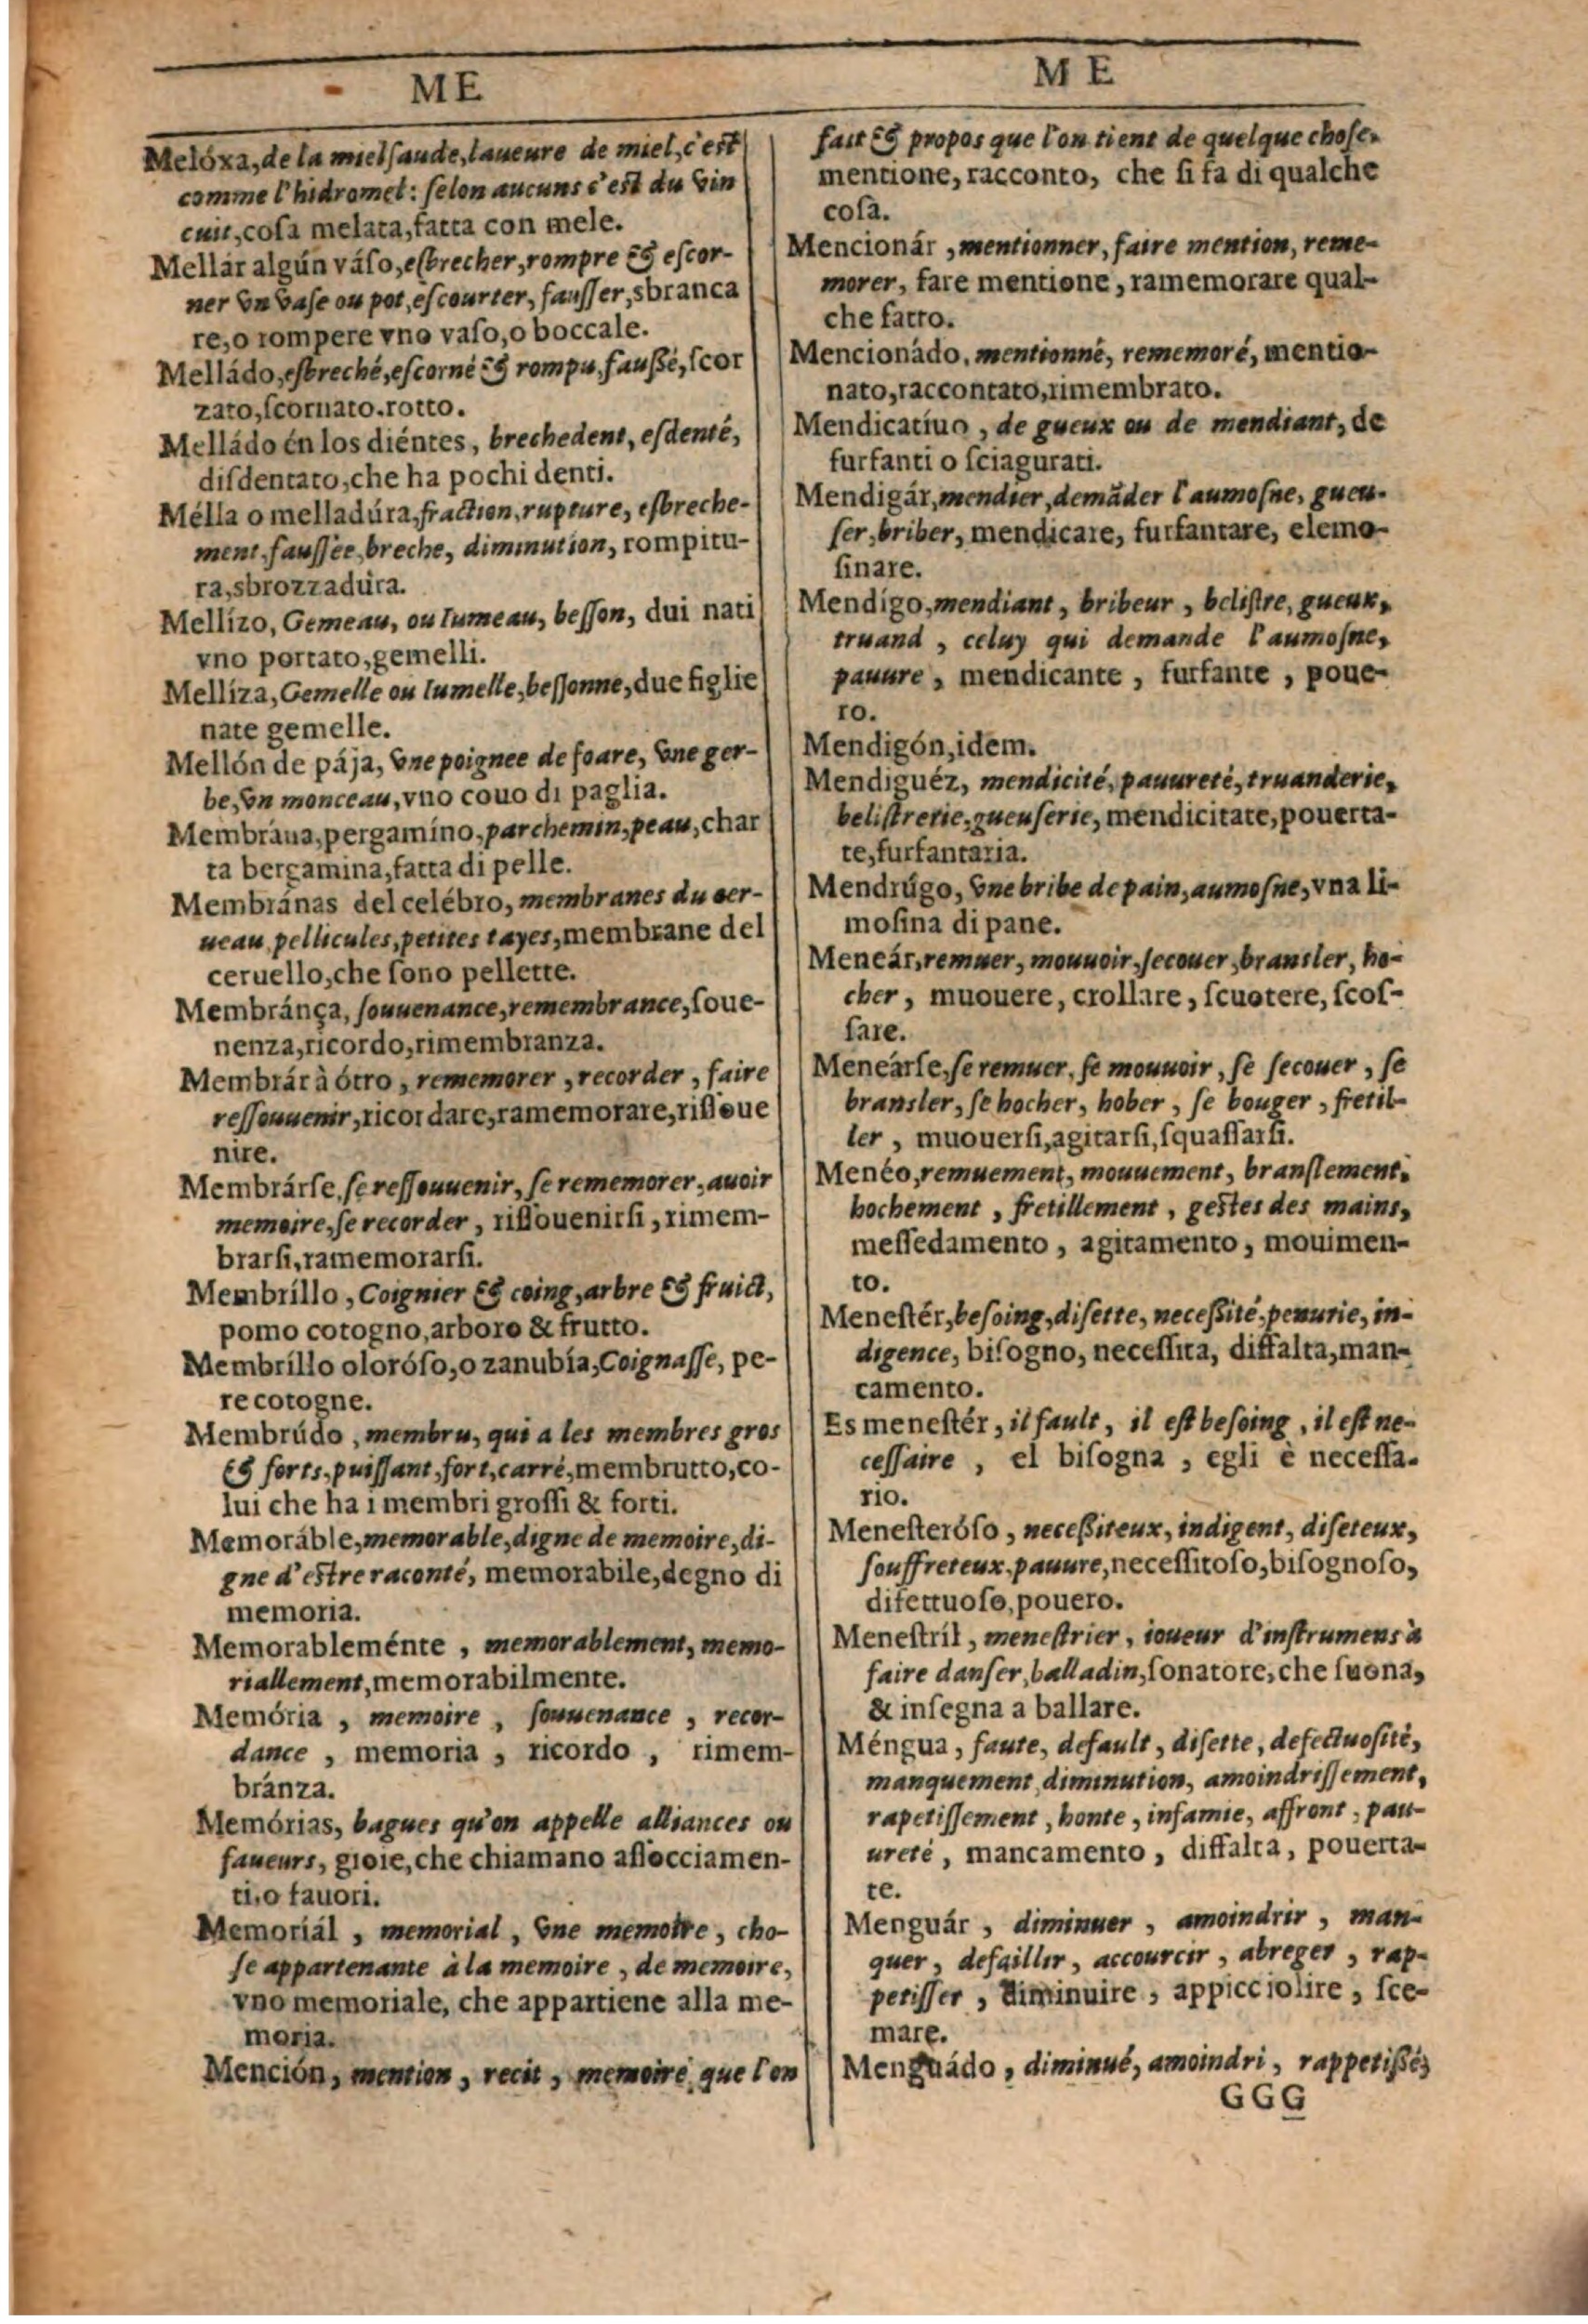 ME
Melóxa, de la mielſaude, laueure de miel, c'eſt
comme l'hidromel: ſelon aucuns c'eſt du vin
cuit, coſa melata, fatta con mele.
Mellár algún váſo, eſbrecher, rompre & eſcor-
ner vn vaſe ou pot, eſcourter, fauſſer, sbranca
re, o rompere vno vaſo, o boccale.
Melládo, eſbreché, eſcorné & rompu, fauſſé, ſcor
zato, ſcornato. rotto.
Melládo én los diéntes, brechedent, eſdenté,
diſdentato, che ha pochi denti.
Mélla o melladúra, fraction, rupture, eſbreche-
ment, fauſſée, breche, diminution, rompitu-
ra, sbrozzadura.
Mellízo, Gemeau, ou Iumeau, beſſon, dui nati
vno portato, gemelli.
Mellíza, Gemelle ou Iumelle, beſſonne, due figlie
nate gemelle.
Mellón de pája, vne poignee de foare, vne ger-
be, vn monceau, vno couo di paglia.
Membrána, pergamíno, parchemin, peau, char
ta bergamina, fatta di pelle.
Membránas del celébro, membranes du cer-
ueau, pellicules, petites tayes, membrane del
ceruello, che ſono pellette.
Membránça, ſouuenance, remembrance, ſoue-
nenza, ricordo, rimembranza.
Membrár à ótro, rememorer, recorder, faire
reſſouuenir, ricordare, ramemorare, riſſoue
nire.
Membrárſe, ſe reſſouuenir, ſe rememorer, auoir
memoire, ſe recorder, riſſouenirſi, rimem-
brarſi, ramemorarſi.
Membríllo, Coignier & coing, arbre & fruict,
pomo cotogno, arboro & frutto.
Membríllo oloróſo, o zanubía, Coignaſſe, pe-
re cotogne.
Membrúdo, membru, qui a les membres gros
& forts, puiſſant, fort, carré, membrutto, co-
lui che ha i membri groſſi & forti.
Memoráble, memorable, digne de memoire, di-
gne d'eſtre raconté, memorabile, degno di
memoria.
Memorableménte, memorablement, memo-
riallement, memorabilmente.
Memória, memoire, ſouuenance, recor-
dance, memoria, ricordo, rimem-
branza.
Memórias, bagues qu'on appelle alliances ou
faueurs, gioie, che chiamano aſſocciamen-
ti, o fauori.
Memoriál, memorial, vne memoire, cho-
ſe appartenante à la memoire, de memoire,
vno memoriale, che appartiene alla me-
moria.
Mención, mention, recit, memoire que l'on
ME
fait & propos que l'on tient de quelque choſe,
mentione, racconto, che ſi fa di qualche
coſa.
Mencionár, mentionner, faire mention, reme-
morer, fare mentione, ramemorare qual-
che fatto.
Mencionádo, mentionné, rememoré, mentio-
nato, raccontato, rimembrato.
Mendicatíuo, de gueux ou de mendiant, de
furfanti o ſciagurati.
Mendigár, mendier, demãder l'aumoſne, gueu-
ſer, briber, mendicare, furfantare, elemo-
ſinare.
Mendígo, mendiant, bribeur, beliſtre, gueux,
truand, celuy qui demande l'aumoſne,
pauure, mendicante, furfante, poue-
ro.
Mendigón, idem.
Mendiguéz, mendicité, pauureté, truanderie,
beliſtrerie, gueuſerie, mendicitate, pouerta-
te, furfantaria.
Mendrúgo, vne bribe de pain, aumoſne, vna li-
moſina di pane.
Meneár, remuer, mouuoir, ſecouer, branſler, ho-
cher, muouere, crollare, ſcuotere, ſcoſ-
ſare.
Meneárſe, ſe remuer, ſe mouuoir, ſe ſecouer, ſe
branſler, ſe hocher, hober, ſe bouger, fretil-
ler, muouerſi, agitarſi, ſquaſſarſi.
Menéo, remuement, mouuement, branſlement,
hochement, fretillement, geſtes des mains,
meſſedamento, agitamento, mouimen-
to.
Meneſtér, beſoing, diſette, neceſſité, penurie, in-
digence, biſogno, neceſſita, diffalta, man-
camento.
Es meneſtér, il fault, il eſt beſoing, il eſt ne-
ceſſaire, el biſogna, egli è neceſſa-
rio.
Meneſteróſo, neceſſiteux, indigent, diſeteux,
ſouffreteux, pauure, neceſſitoſo, biſognoſo,
difettuoſo, pouero.
Meneſtríl, meneſtrier, ioueur d'inſtrumens à
faire danſer, balladin, ſonatore, che ſuona,
& inſegna a ballare.
Méngua, faute, default, diſette, defectuoſité,
manquement, diminution, amoindriſſement,
rapetiſſement, honte, infamie, affront, pau-
ureté, mancamento, diffalta, pouerta-
te.
Menguár, diminuer, amoindrir, man-
quer, defaillir, accourcir, abreger, rap-
petiſſer, diminuire, appicciolire, ſce-
mare.
Menguádo, diminué, amoindri, rappetiſſé,
GGG